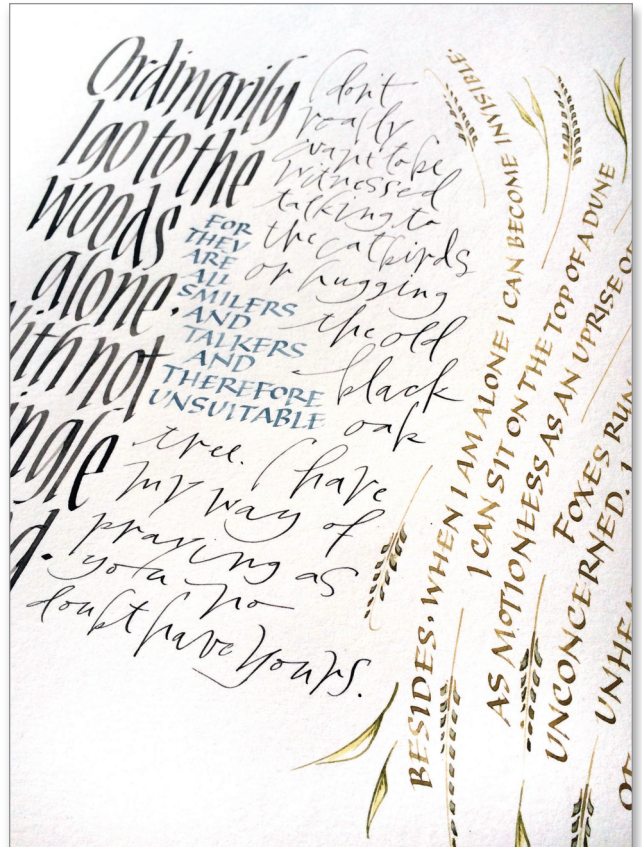 Ordinarily
I go to the
woods
alone,
with not
ingle
d.
FOR
THEY
ARE
ALL
SMILERS
AND
TALKERS
AND
THEREFORE
UNSUITABLE
I don't
really
want to be
witnessed
talking to
the catbirds
or hugging
the old
black
oak
tree. I have
my way of
praying as
you no
doubt have yours.
BESIDES, WHEN I AM ALONE I CAN BECOME INVISIBLE.
I CAN SIT ON THE TOP OF A DUNE
AS MOTIONLESS AS AN UPRISE O
FOXES RUN
UNCONCERNED. I
UNHEA